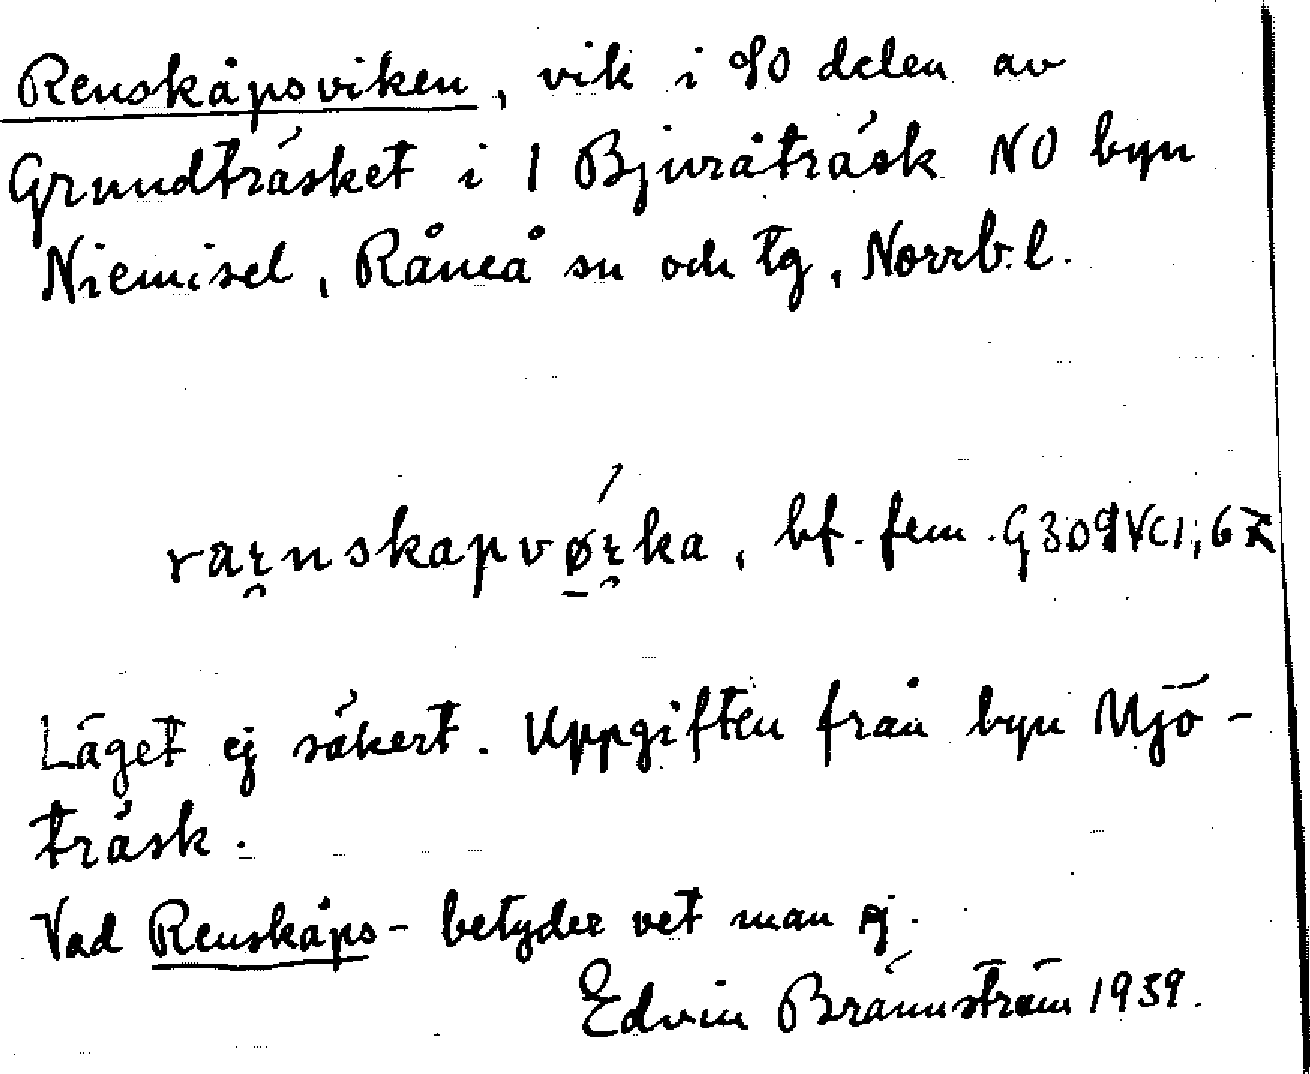 Renskåpsviken, vik i SO delen av
Grundträsket i 1 Bjuråträsk NO byn
Niemisel, Råneå sn och tg, Norrb.l.
rarnskapvø̱rka, bf. fem. G309VC1;6
Läget ej säkert. Uppgiften från byn Mjö-
träsk.
Vad Renskåps- betyder vet man ej.
Edvin Brännström 1939.